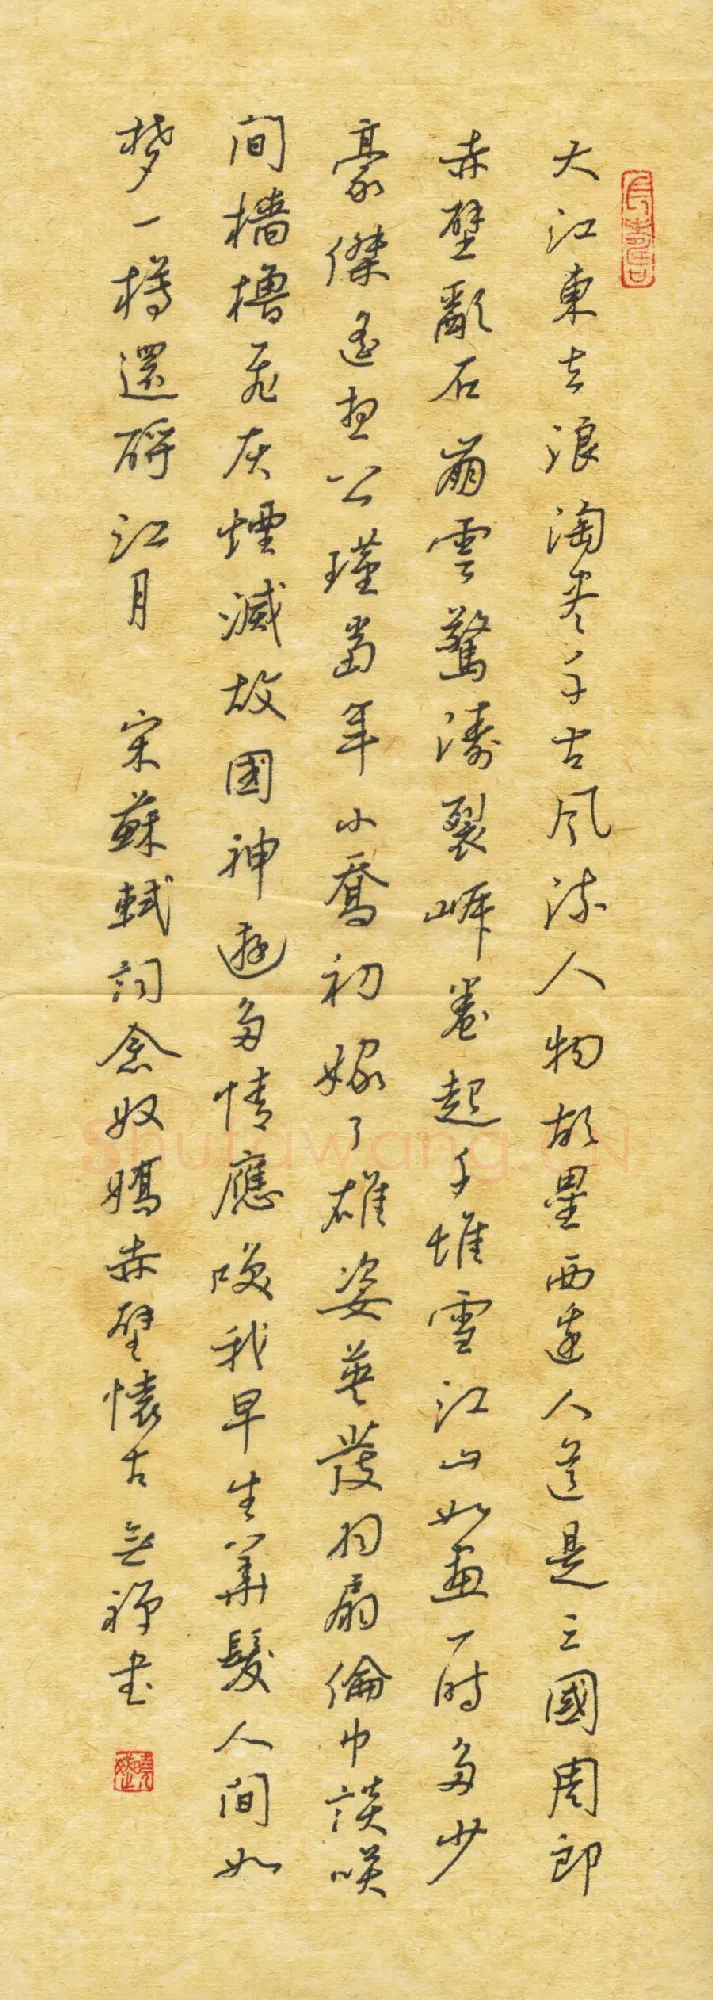 大江東去浪淘盡千古風流人物故壘西邊人道是三國周郎
赤壁亂石崩雲驚濤裂岸捲起千堆雪江山如畫一時多少
豪傑遙想公瑾當年小喬初嫁了雄姿英發羽扇綸巾談笑
間檣櫓飛灰煙滅故國神遊多情應笑我早生華髮人間如
梦一樽還酹江月 宋蘇軾詞念奴嬌赤壁懷古 禪書
Shufawang.CN